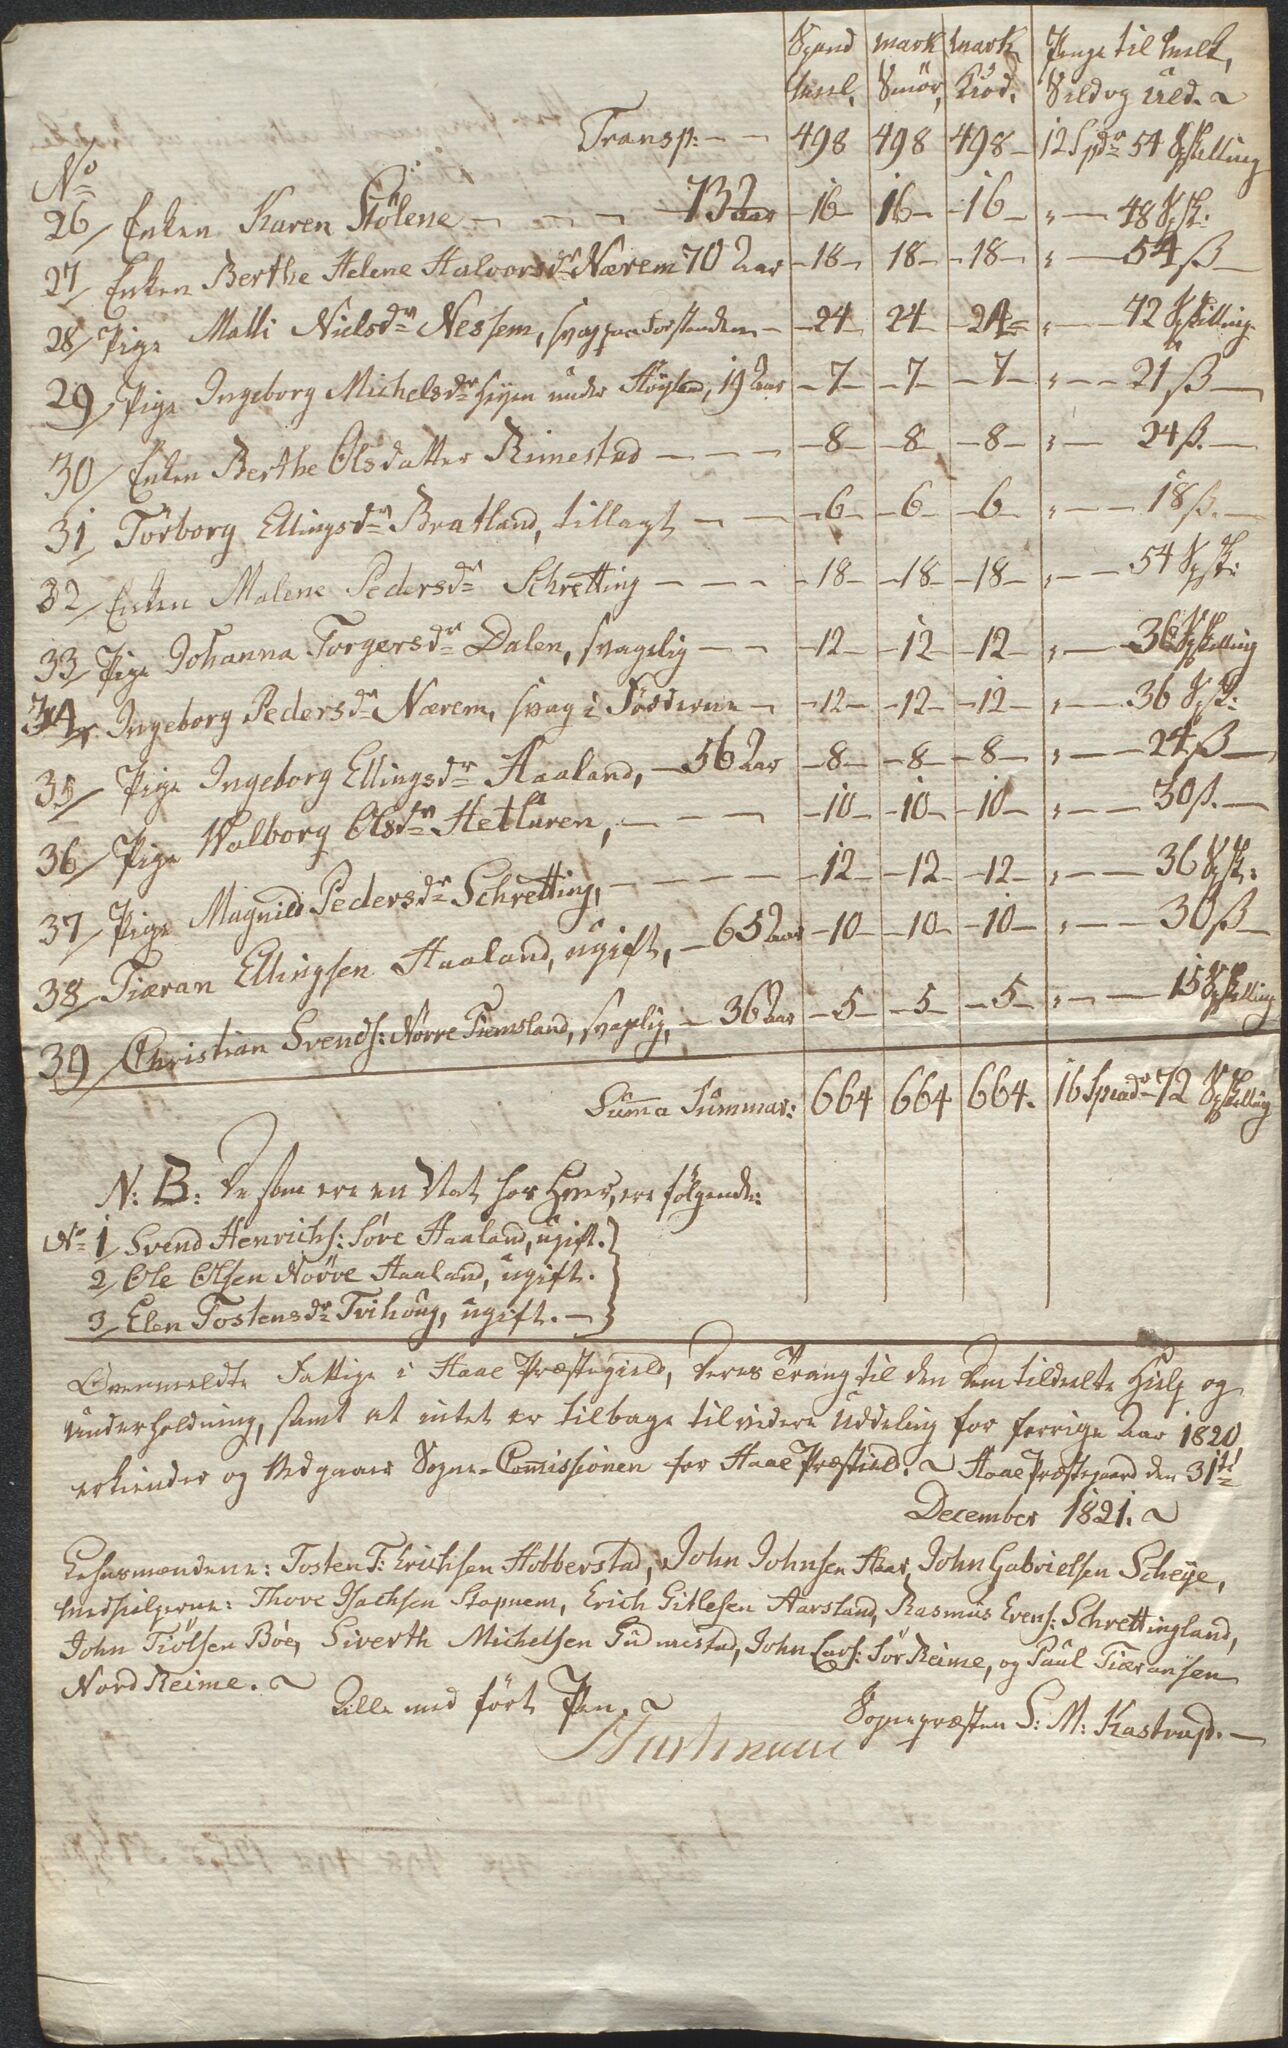 Spand meel, | mark Smör, | mark Kiöd, | Penge til melk, Sild og uld. ~
Transp: — — 498 498 498 — 12 Spdr 54 Skilling
No
26/ Enken Karen Stölene — — — 73 Aar — 16 — 16 — 16 — " — 48 Sk:
27/ Enken Berthe Helene Halvorsdr Nærem 70 Aar — 18 — 18 — 18 — " — 54 ß —
28/ Pige Malli Nielsdr Nessem, svag paa Forstanden — 24 — 24 — 24 = " — 42 Skilling
29/ Pige Ingeborg Michelsdr under Höyland, 19 Aar — 7 — 7 — 7 — " — 21 ß —
30/ Enken Berthe Olsdatter Rimestad — — — 8 — 8 — 8 — " — 24 ß. —
31/ Torborg Ellingsdr Bratland, tillagt — — 6 — 6 — 6 — " — 18 ß. —
32/ Enken Malene Pedersdr Schretting — — — 18 — 18 — 18 — " — 54 Sk:
33/ Pige Johanna Torgersdr Dalen, svagelig — — 12 — 12 — 12 — " — 36 Skilling
34/ Ingeborg Pedersdr Nærem, svag i Födderne — 12 — 12 — 12 — " — 36 Sk:
35/ Pige Ingeborg Ellingsdr Haaland, — 56 Aar — 8 — 8 — 8 — " — 24 ß —
36/ Pige Walborg Olsdr Hetluren, — — — 10 — 10 — 10 — " — 30 ß. —
37/ Pige Magnild Pedersdr Schretting, — — — 12 — 12 — 12 — " — 36 Sk:
38/ Tiæran Ellingsen Haaland, ugift, — 65 Aar — 10 — 10 — 10 — " — 30 ß —
39/ Christian Svends: Norre Tiemsland, svagelig, — 36 Aar — 5 — 5 — 5 — " — 15 Skilling
Summa Summar: 664 664 664. 16 Specidr 72 Skilling
N: B: De som ere en Nat hos Hver, ere følgende:
No 1/ Svend Henrichs: Søre Haaland, ugift.
2/ Ole Olsen Norre Haaland, ugift.
3/ Elen Tostensdr Tvihoug, ugift. —
Ovenmeldte Fattige i Haae Præstegield, deres Trang til den dem tildeelte Hielp og
underholdning, samt at intet er tilbage til videre Uddeling for forrige Aar 1820,
erkiender og Vedgaaer Sogne-Commissionen for Haae Præstgield. ~ Haae Præstegaard den 31te
December 1821. ~
Lehnsmændene: Tosten T: Erichsen Hobberstad, John Johnsen Haar, John Gabrielsen Scheye,
medhielperne: Thore Isachsen Stapnem, Erich Gitlesen Aarsland, Rasmus Evens: Schrettingland,
John Tiölsen Böe, Siverth Michelsen Gudmestad, John Lars: Sör Reime, og Paul Tiæransen
Nord Reime. ~
Alle med fört Pen. ~
Sognepræsten S: M: Kastrup. —